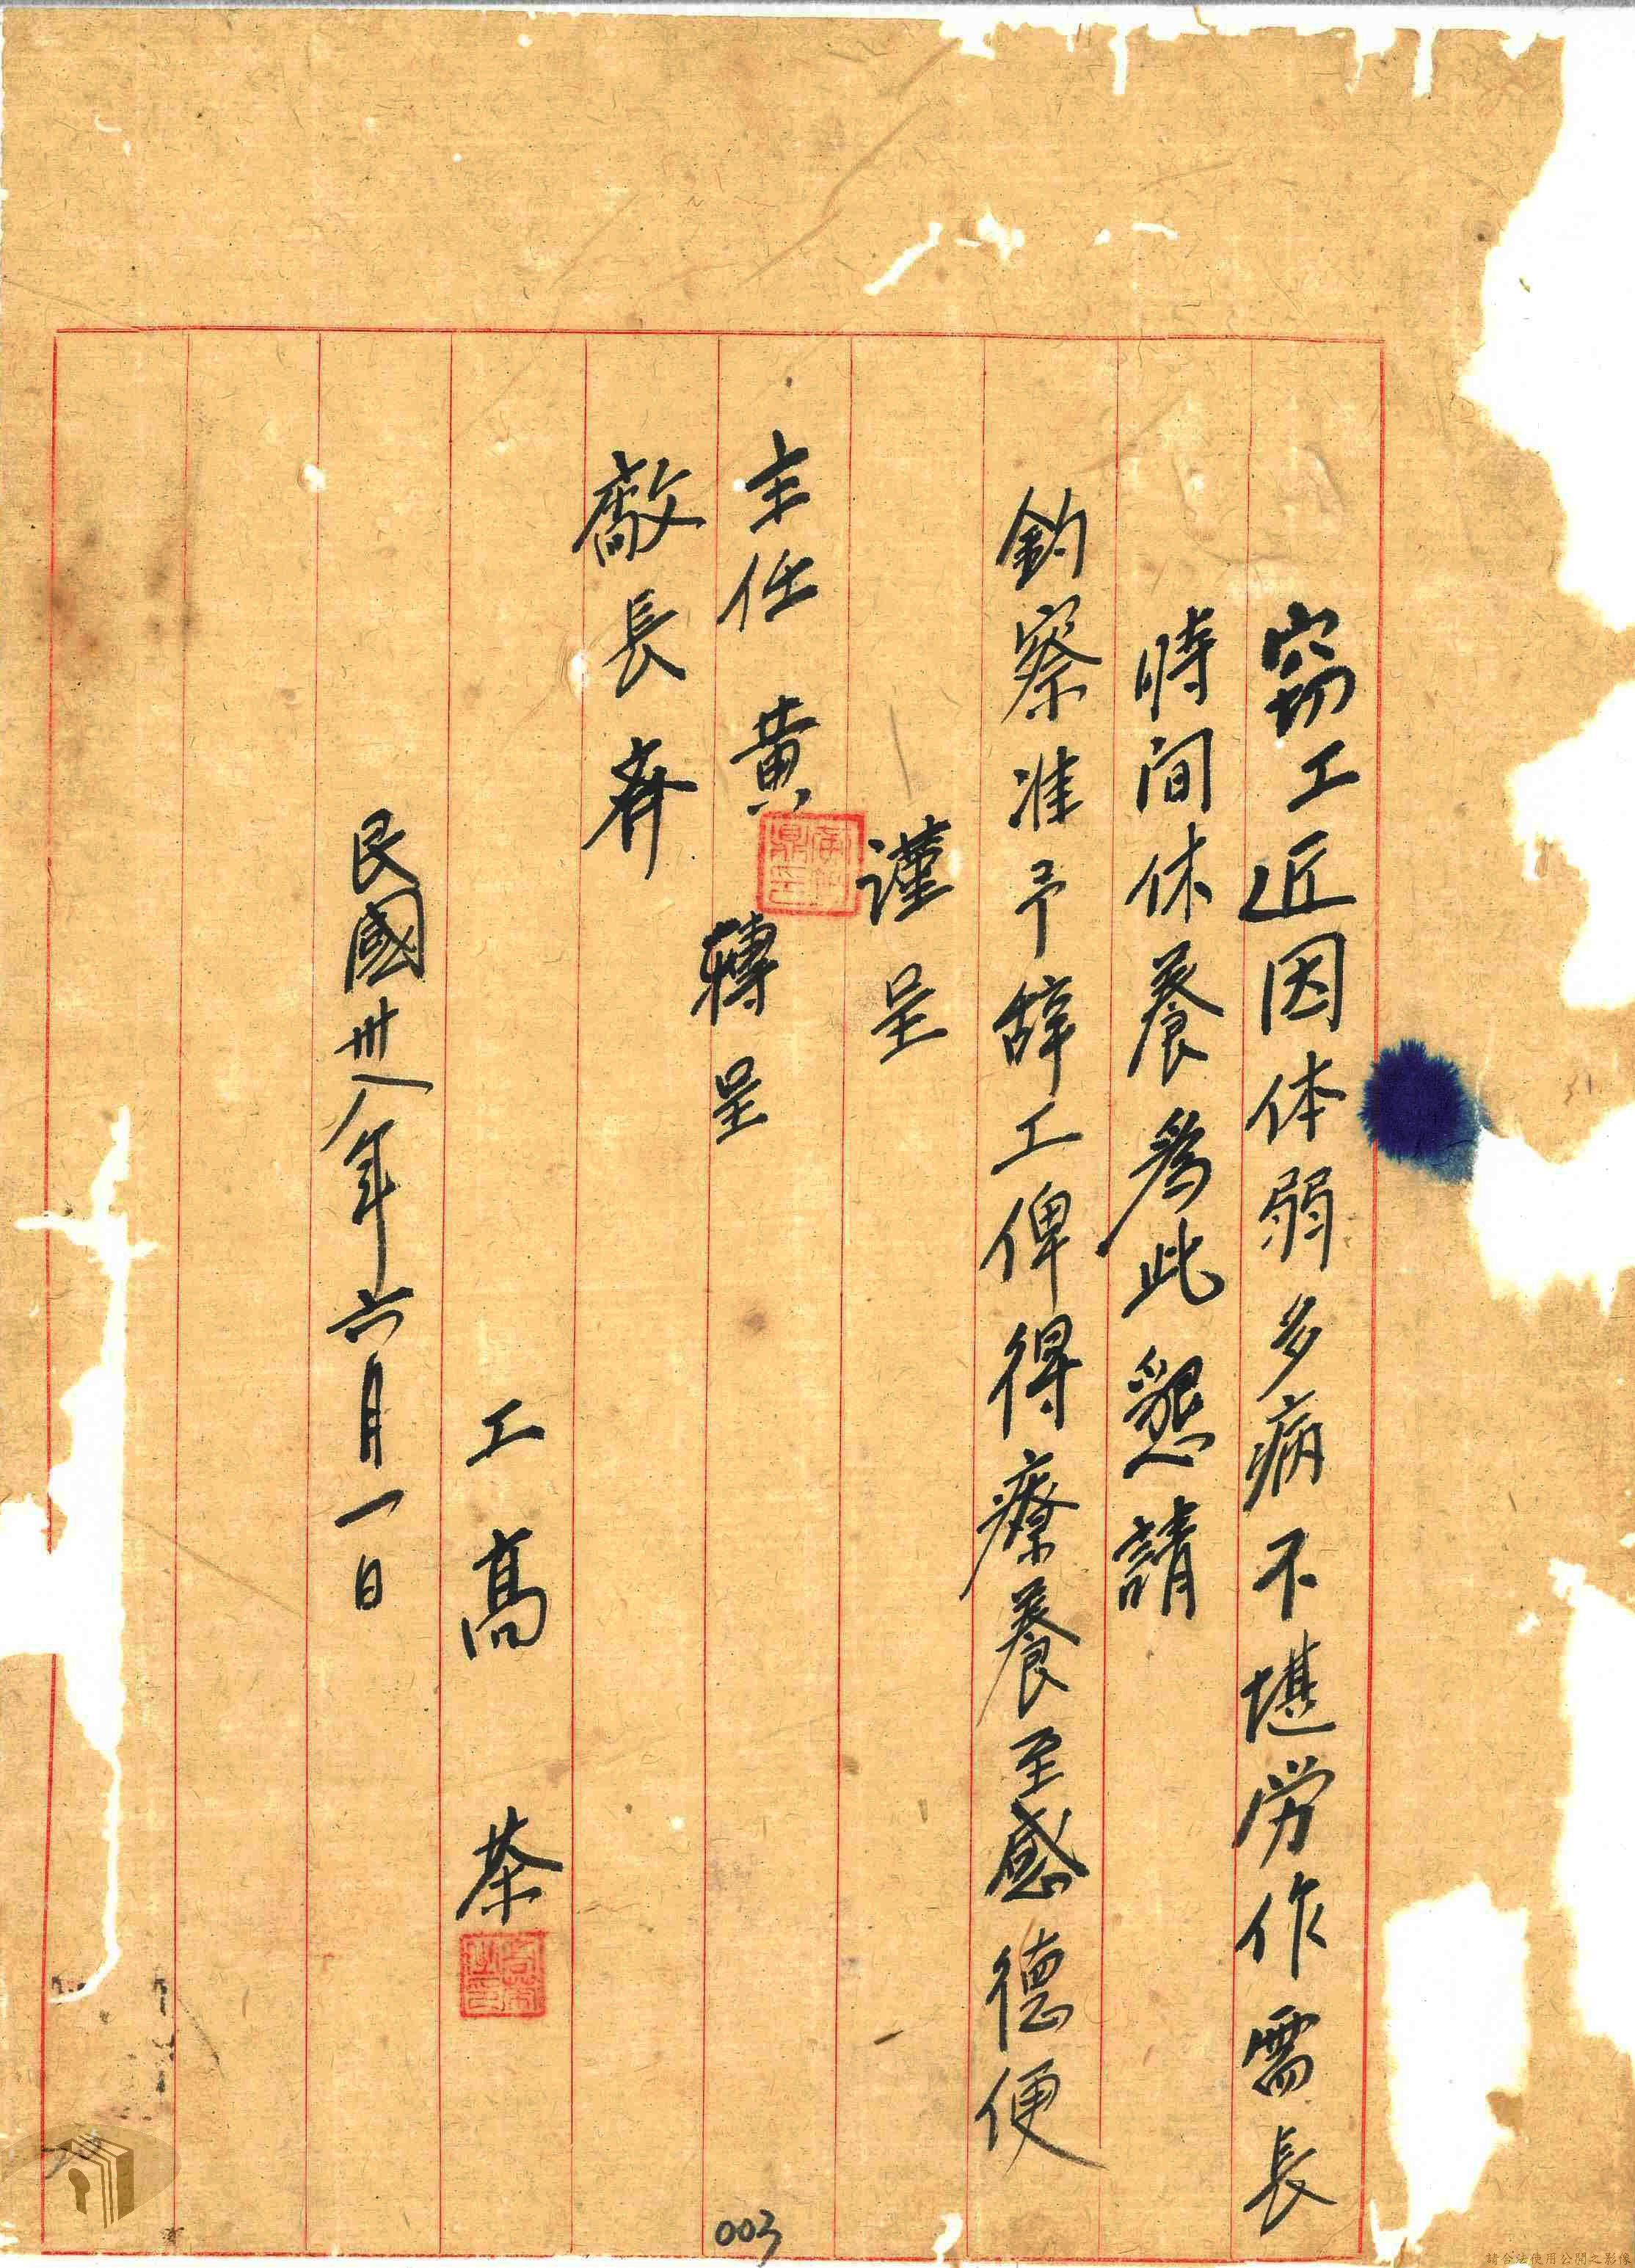 竊工近因体弱多病不堪労作需長
時间休養為此懇請
鈞察准予辞工俾得療養至感德便
謹呈
主任 黄 轉呈
廠長 齐
工 高 茶
民國卅八年六月一日
003
請合法使用公開之影像